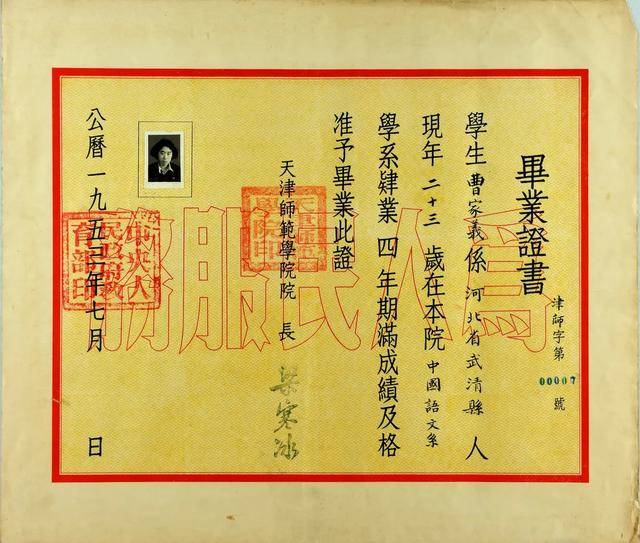 畢業證書
津師字第00007號
學生曹家義係河北省武清縣人
現年二十三歲在本院中國語文系
學系肄業四年期滿成績及格
准予畢業此證
天津師範學院院長
梁寒冰
公曆一九五三年七月 日
為人民服務
中央人民政府教育部印
天津師範學院印